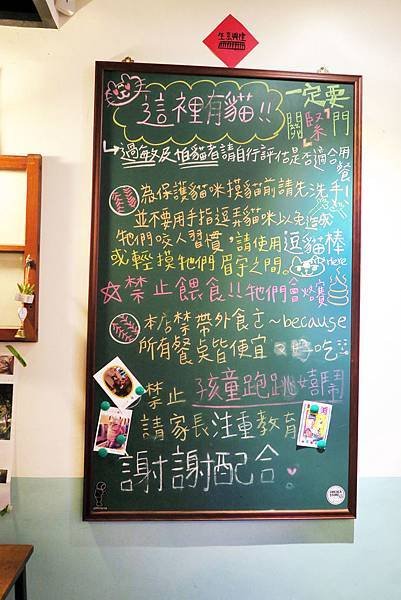 生意興隆
這裡有貓!!
一定要
關"緊"門
過敏及怕貓者請自行評估是否適合用餐
為保護貓咪摸貓前請先洗手!
並不要用手指逗弄貓咪以免造成
牠們咬人習慣,請使用逗貓棒
或輕摸牠們眉宇之間。
Here~
☆禁止餵食!!牠們會烙賽
本店禁帶外食ㄛ~because
所有餐桌皆便宜 吃
禁止 孩童跑跳嬉鬧
請家長注重教育
謝謝配合